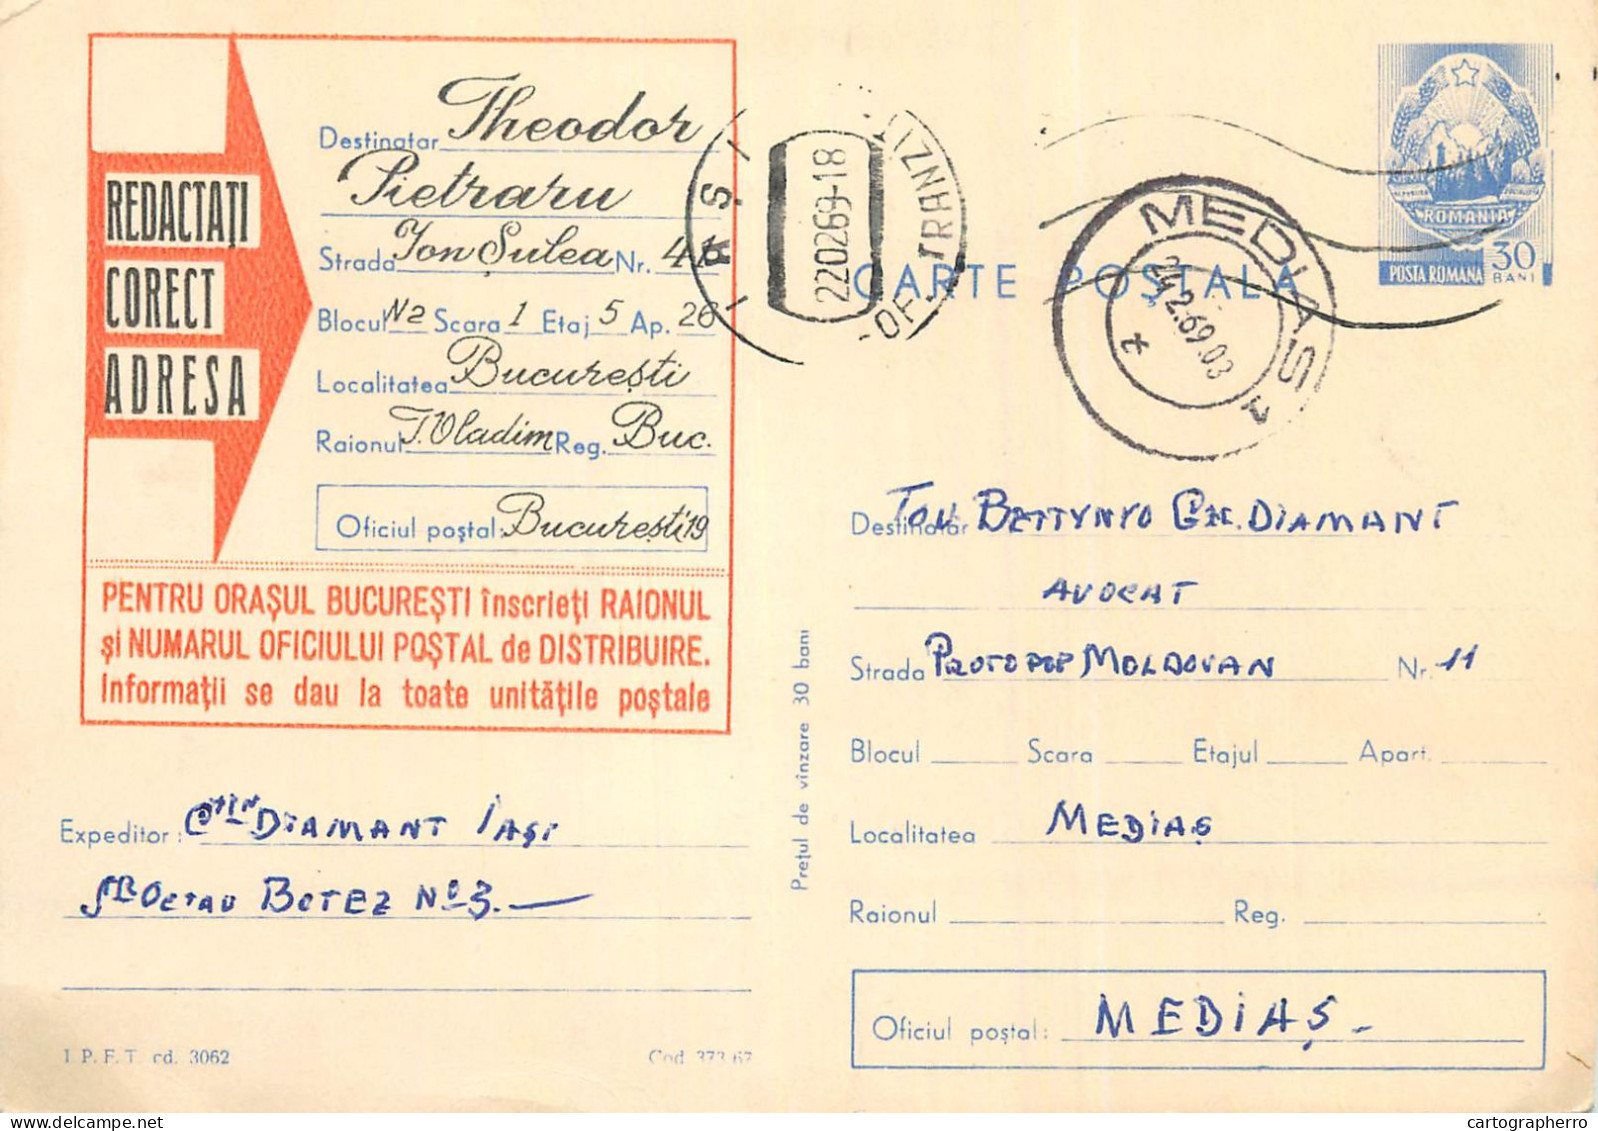 REDACTAȚI
CORECT
ADRESA
Destinatar Theodor
Pietraru
Strada Ion Șulea Nr. 41
Blocul N2 Scara 1 Etaj 5 Ap. 26
Localitatea București
Raionul T. Vladim Reg. Buc.
Oficiul poștal: București 19
PENTRU ORAȘUL BUCUREȘTI înscrieți RAIONUL
și NUMARUL OFICIULUI POȘTAL de DISTRIBUIRE.
Informații se dau la toate unitățile poștale
Expeditor: Ctin DIAMANT IAȘI
BOTEZ No 3.
I P. F. T. cd. 3062
Cod 373 67
Prețul de vînzare 30 bani
IAȘI
220269-18
OF. TRANZI
MEDIAȘ 1
24.2.69.03
CARTE POȘTALĂ
ROMANIA
POSTA ROMANA 30
BANI
Destinatar BETTYNYO GH. DIAMANT
AVOCAT
Strada PROTOPOP MOLDOVAN Nr. 11
Blocul Scara Etajul Apart.
Localitatea MEDIAȘ
Raionul Reg.
Oficiul poștal: MEDIAȘ -
cartographerro